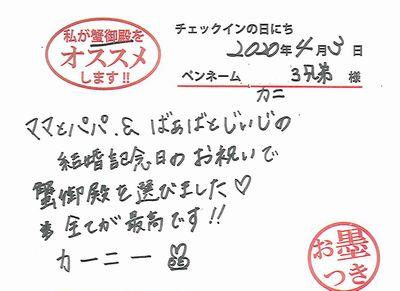 私が蟹御殿を
オススメ
します!!
チェックインの日にち
2020年4月3日
ペンネーム 3兄弟 様
カニ
ママとパパ.&ばぁばとじぃじの
結婚記念日のお祝いで
蟹御殿を選びました♡
全てが最高です!!
カーニー
お墨
つき